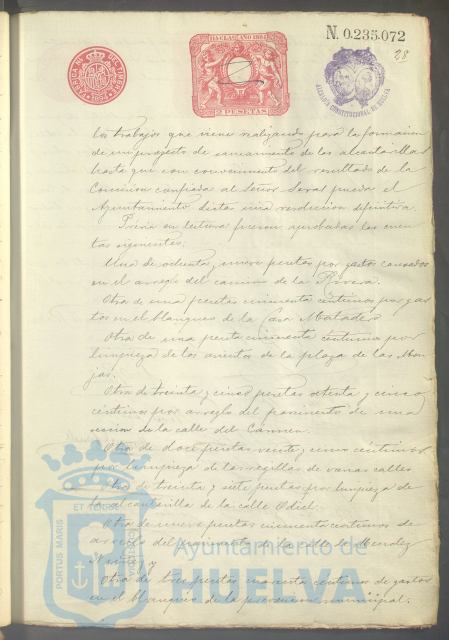 N. 0.235.072
28
11A CLASE AÑO 1884
2 PESETAS
1884
ALCALDIA CONSTITUCIONAL DE HUELVA
los trabajos que viene realizando para la formacion
de un proyecto de saneamiento de las alcantarillas
hasta que con conocimiento del resultado de la
Comision confiada al Señor Seral pueda el
Ayuntamiento dictar una resolucion definitiva.
Previa su lectura fueron aprobadas las cuen
tas siguientes:
Una de ochenta y nueve pesetas por gastos causados
en el arreglo del camino de la Rivera.
Otra de una pesetas cincuenta centimos por gas
tos en el blanqueo de la Casa Matadero
Otra de una peseta cincuenta centimos por
limpieza de los asientos de la plaza de las Mon
jas.
Otra de treinta y cinco pesetas ochenta y cinco
centimos por arreglo del pavimento de una
seccion de la calle del Carmen.
Otra de doce pesetas veinte y cinco centimos
por limpieza de las rejillas de varias calles
Otra de treinta y siete pesetas por limpieza de
la alcantarilla de la calle Odiel.
Otra de nueve pesetas cincuenta centimos de
arreglo del pavimento de la calle de Mendez
Nuñez y
Otra de tres pesetas cuarenta centimos de gastos
en el blanqueo de la prevencion municipal.
PORTUS MARIS ET TERRAE CUSTODIA
Ayuntamiento de
HUELVA